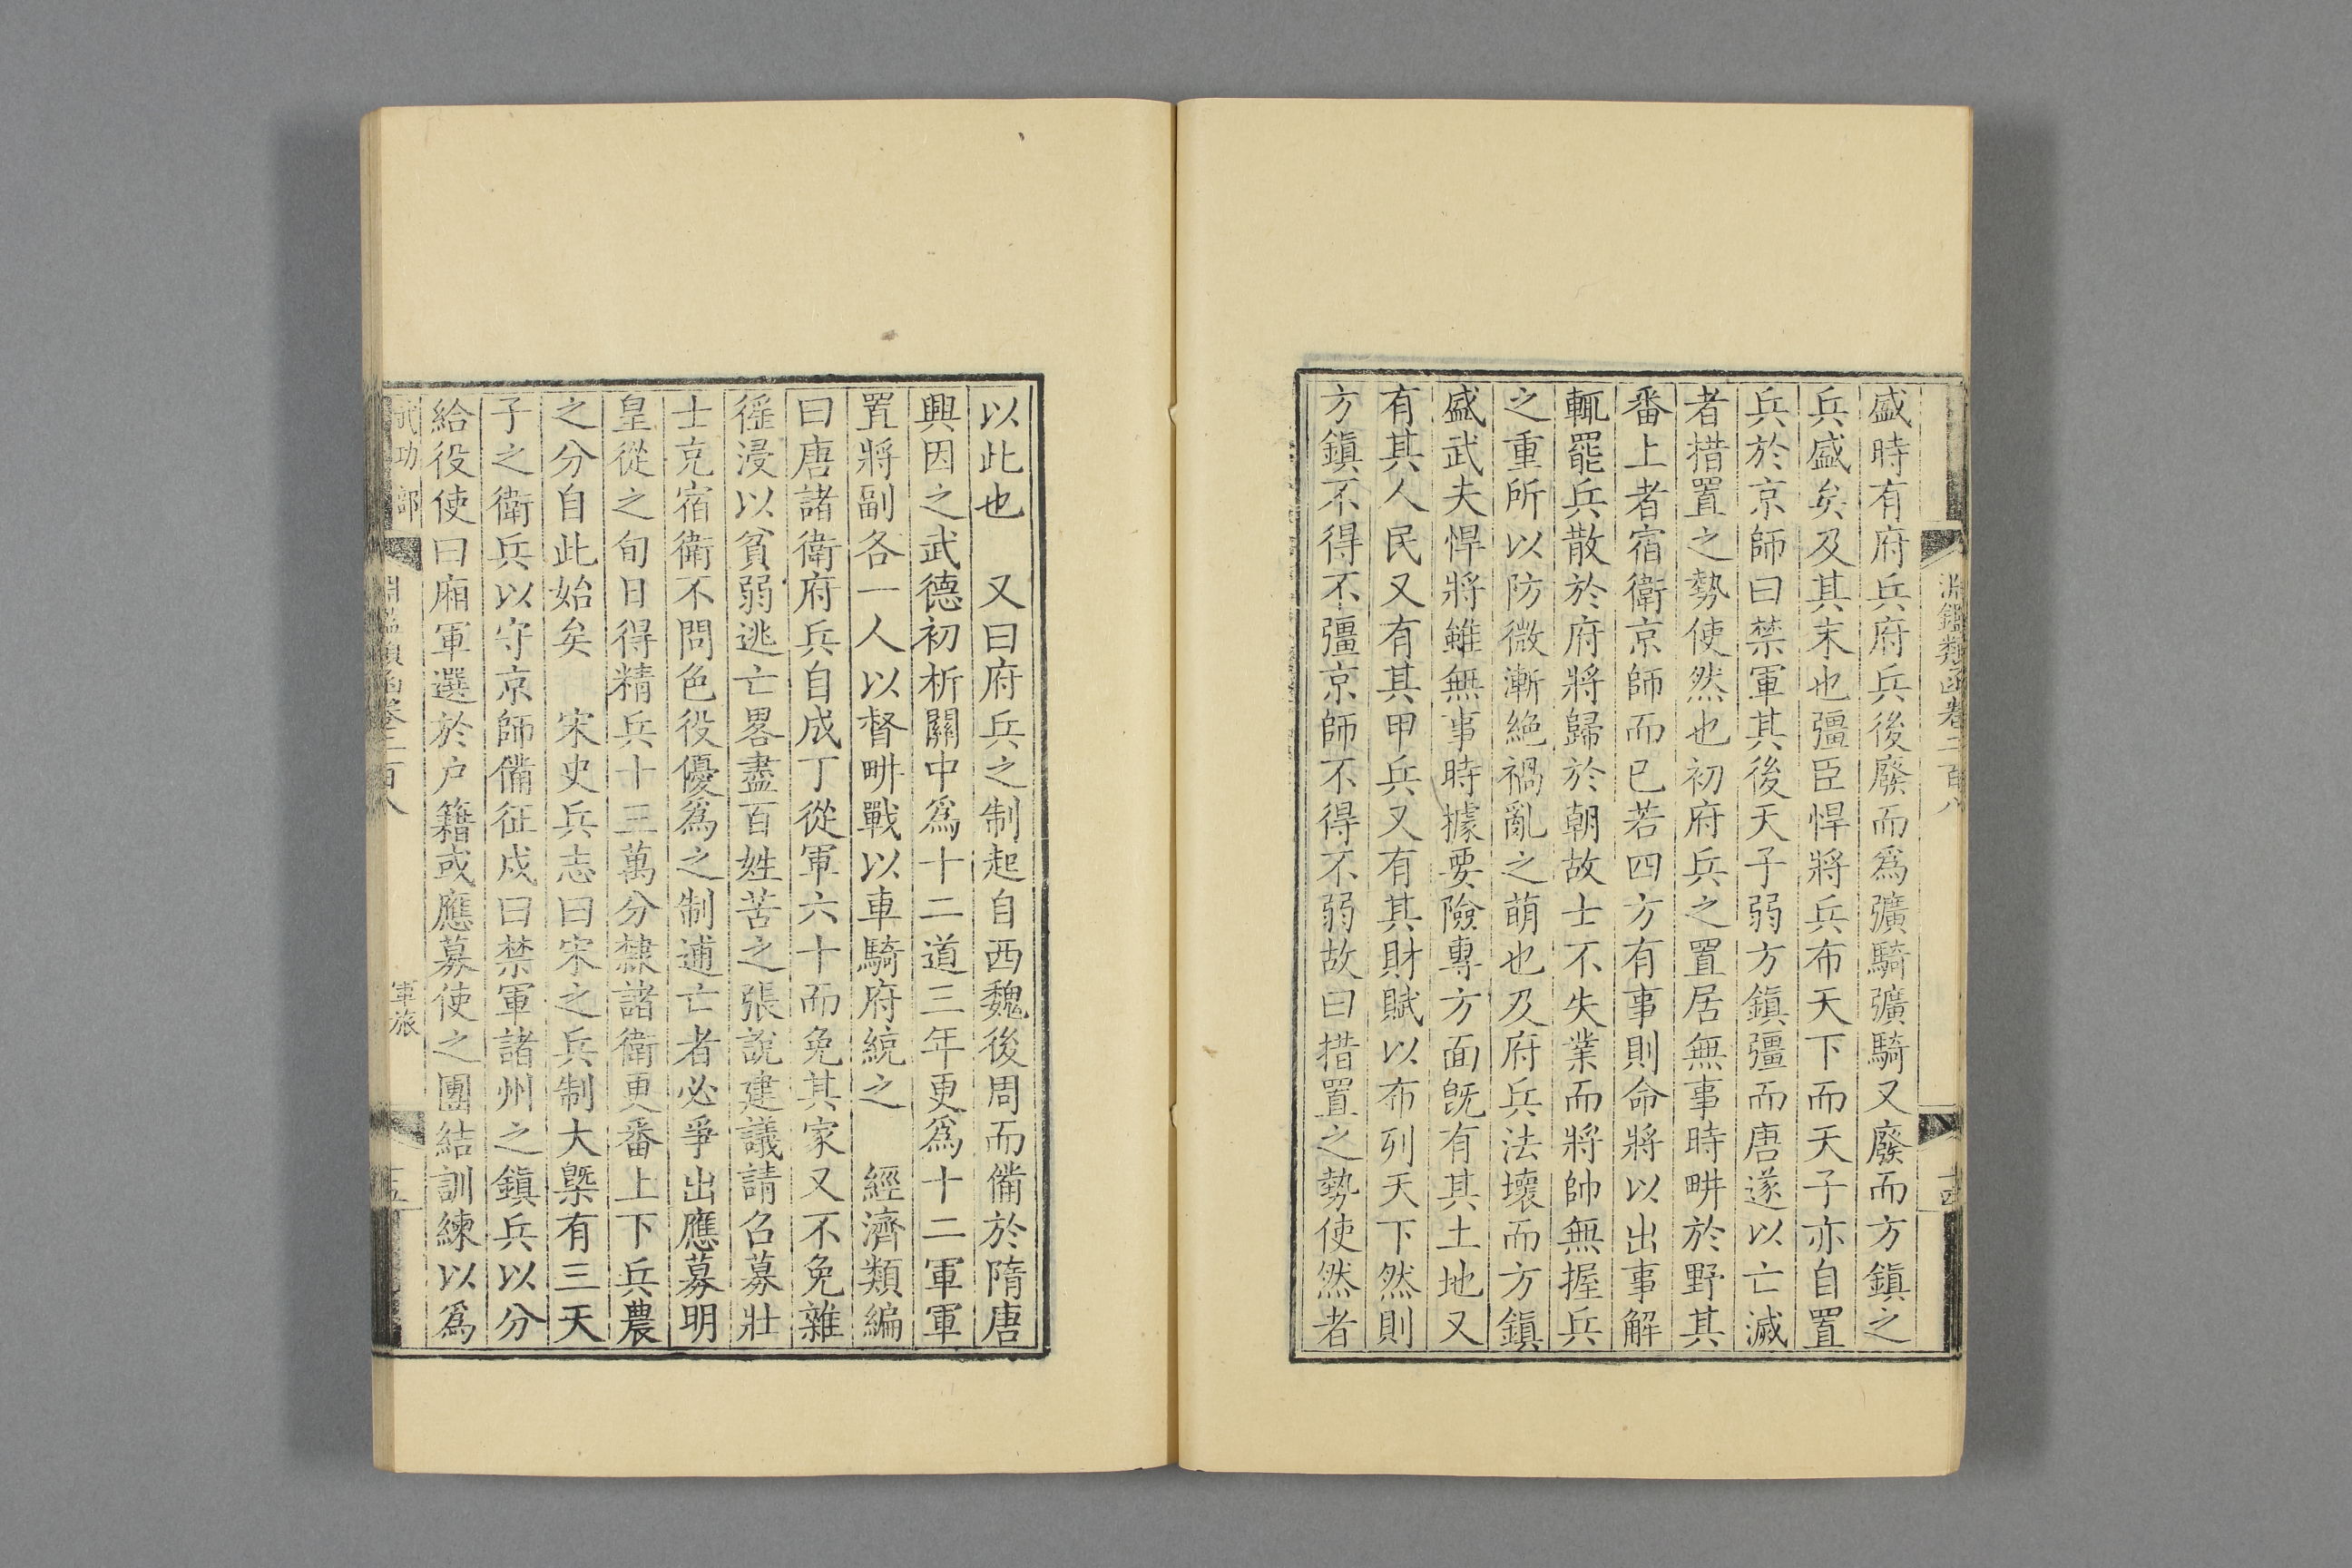 淵鑑類函卷二百八
十四
盛時有府兵府兵後廢而爲彍騎彍騎又廢而方鎮之
兵盛矣及其末也彊臣悍將兵布天下而天子亦自置
兵於京師曰禁軍其後天子弱方鎮彊而唐遂以亡滅
者措置之勢使然也初府兵之置居無事時畊於野其
番上者宿衛京師而已若四方有事則命將以出事解
輒罷兵散於府將歸於朝故士不失業而將帥無握兵
之重所以防微漸絶禍亂之萌也及府兵法壞而方鎮
盛武夫悍將雖無事時據要險專方面旣有其土地又
有其人民又有其甲兵又有其財賦以布列天下然則
方鎮不得不彊京師不得不弱故曰措置之勢使然者
以此也　又曰府兵之制起自西魏後周而備於隋唐
興因之武德初析關中爲十二道三年更爲十二軍軍
置將副各一人以督畊戰以車騎府統之　經濟類編
曰唐諸衛府兵自成丁從軍六十而免其家又不免雜
徭浸以貧弱逃亡畧盡百姓苦之張說建議請召募壯
士克宿衛不問色役優爲之制逋亡者必爭出應募明
皇從之旬日得精兵十三萬分隸諸衛更番上下兵農
之分自此始矣　宋史兵志曰宋之兵制大槩有三天
子之衛兵以守京師備征戍曰禁軍諸州之鎮兵以分
給役使曰廂軍選於户籍或應募使之團結訓練以爲
武功部
淵鑑類函卷二百八
軍旅
十五